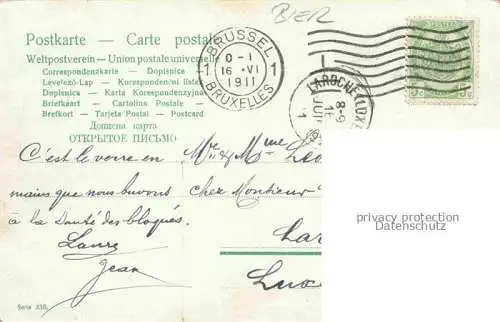 BIER
Postkarte - Carte postale
Weltpostverein - Union postale universelle
Correspondenzkarte - Dopisnice
Levelező-Lap - Koresponden
Dopisnica - Karta Korespondenzyjna
Briefkaart - Cartolina Postale
Brefkort - Tarjeta Postal - Postcard
Дописна карта
ОТКРЫТОЕ ПИСЬМО
BRUSSEL
1 0-1 1
16 VI
1911
BRUXELLES
LAROCHE (LUX
8-9
16
JUI
5c 5c
C'est le verre en
mains que nous buvons
à la Santé des bloqués.
Laure
Jean
Mr & Mme Leo
chez Monsieur
Lar
Lux
privacy protection
Datenschutz
Serie 330.